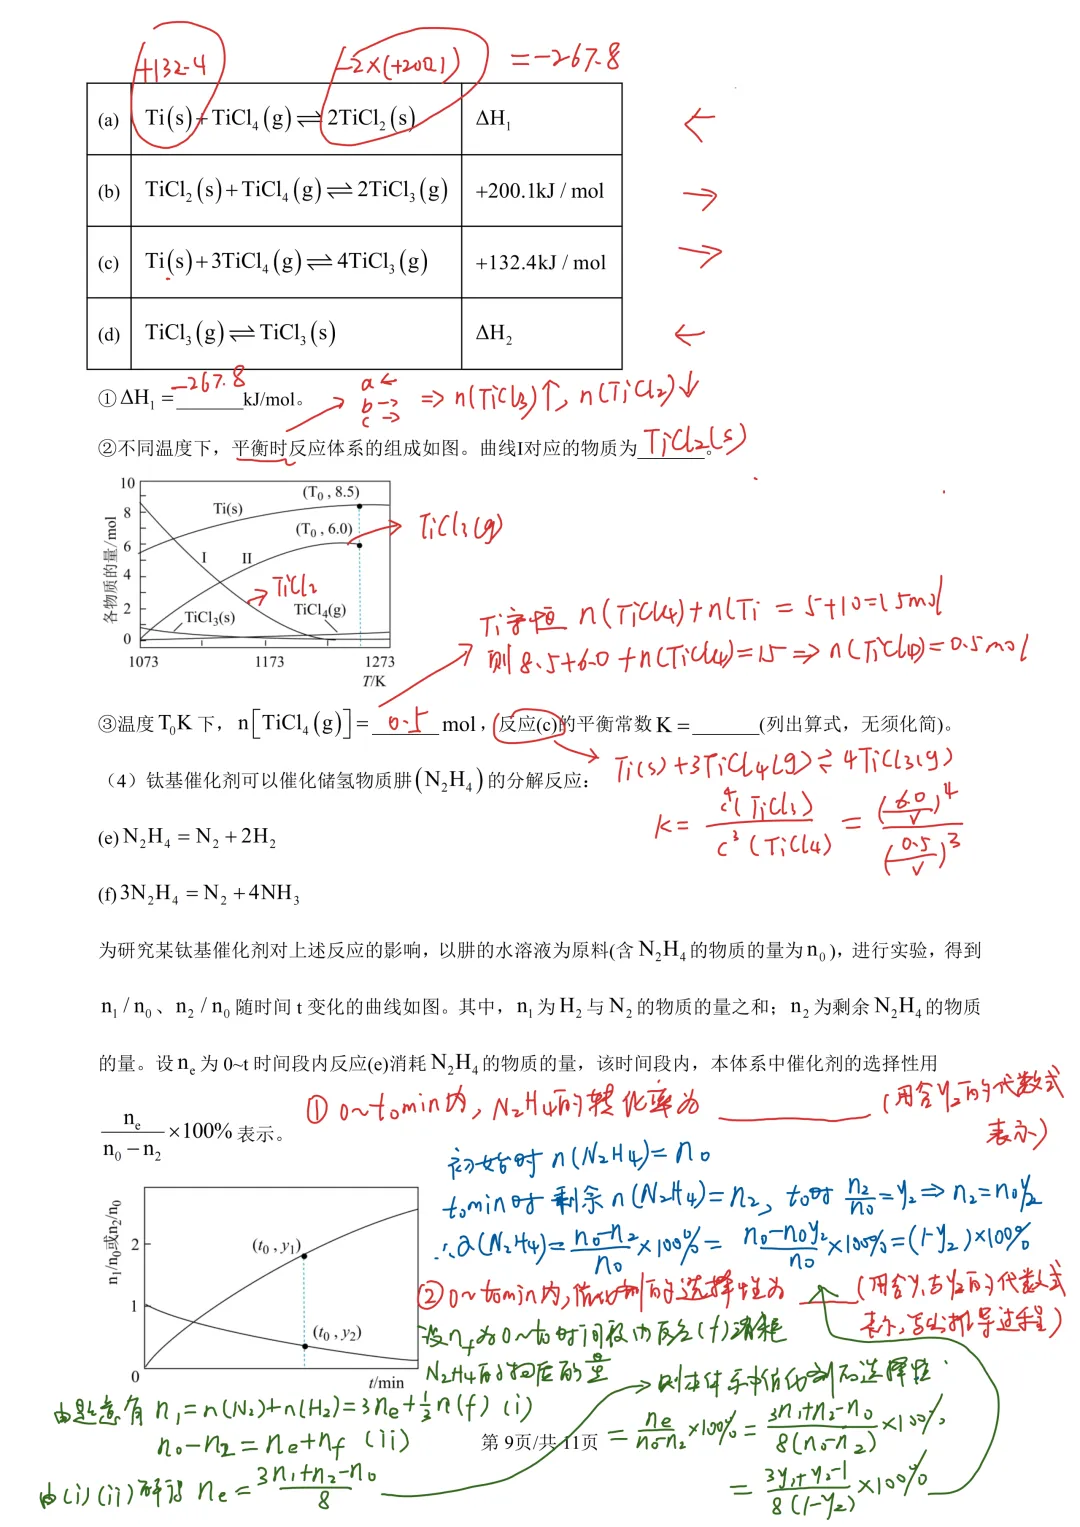 +132.4 -2×(+200.1) =-267.8
(a) Ti(s)+TiCl₄(g)⇌2TiCl₂(s) ΔH₁ ←
(b) TiCl₂(s)+TiCl₄(g)⇌2TiCl₃(g) +200.1kJ / mol →
(c) Ti(s)+3TiCl₄(g)⇌4TiCl₃(g) +132.4kJ / mol →
(d) TiCl₃(g)⇌TiCl₃(s) ΔH₂ ←
①ΔH₁=-267.8kJ/mol。
a←
b→ ⇒ n(TiCl₃)↑, n(TiCl₂)↓
c→
②不同温度下，平衡时反应体系的组成如图。曲线I对应的物质为TiCl₂(s)。
各物质的量/mol
10
8
6
4
2
0
(T₀ , 8.5)
Ti(s)
(T₀ , 6.0)
TiCl₃(g)
I
II
TiCl₂
TiCl₃(s)
TiCl₄(g)
1073 1173 1273
T/K
Ti守恒 n(TiCl₄)+n(Ti = 5+10=15mol
则8.5+6.0+n(TiCl₄)=15⇒n(TiCl₄)=0.5mol
③温度T₀K下，n[TiCl₄(g)]=0.5mol，反应(c)的平衡常数K=_______(列出算式，无须化简)。
Ti(s)+3TiCl₄(g)⇌4TiCl₃(g)
K=c⁴(TiCl₃)/c³(TiCl₄)=(6.0/V)⁴/(0.5/V)³
（4）钛基催化剂可以催化储氢物质肼(N₂H₄)的分解反应：
(e)N₂H₄=N₂+2H₂
(f)3N₂H₄=N₂+4NH₃
为研究某钛基催化剂对上述反应的影响，以肼的水溶液为原料(含N₂H₄的物质的量为n₀)，进行实验，得到
n₁/n₀、n₂/n₀随时间t变化的曲线如图。其中，n₁为H₂与N₂的物质的量之和；n₂为剩余N₂H₄的物质
的量。设nₑ为0~t时间段内反应(e)消耗N₂H₄的物质的量，该时间段内，本体系中催化剂的选择性用
nₑ/(n₀-n₂)×100%表示。
①0~t₀min内，N₂H₄的转化率为_______(用含y₂的代数式
表示)
初始时n(N₂H₄)=n₀
t₀min时剩余n(N₂H₄)=n₂, t₀时n₂/n₀=y₂⇒n₂=n₀y₂
∴α(N₂H₄)=(n₀-n₂)/n₀×100%=(n₀-n₀y₂)/n₀×100%=(1-y₂)×100%
②0~t₀min内，催化剂的选择性为_______(用含y₁与y₂的代数式
表示，写出推导过程)
n₁/n₀或n₂/n₀
2
1
0
(t₀ , y₁)
(t₀ , y₂)
t/min
设nf为0~t₀时间段内反应(f)消耗
N₂H₄的物质的量
由题意有n₁=n(N₂)+n(H₂)=3ne+⅓n(f) (i)
n₀-n₂=ne+nf (ii)
由(i)(ii)解得ne=(3n₁+n₂-n₀)/8
则本体系中催化剂的选择性:
=ne/(n₀-n₂)×100%=(3n₁+n₂-n₀)/8(n₀-n₂)×100%
=(3y₁+y₂-1)/8(1-y₂)×100%
第 9页/共 11页